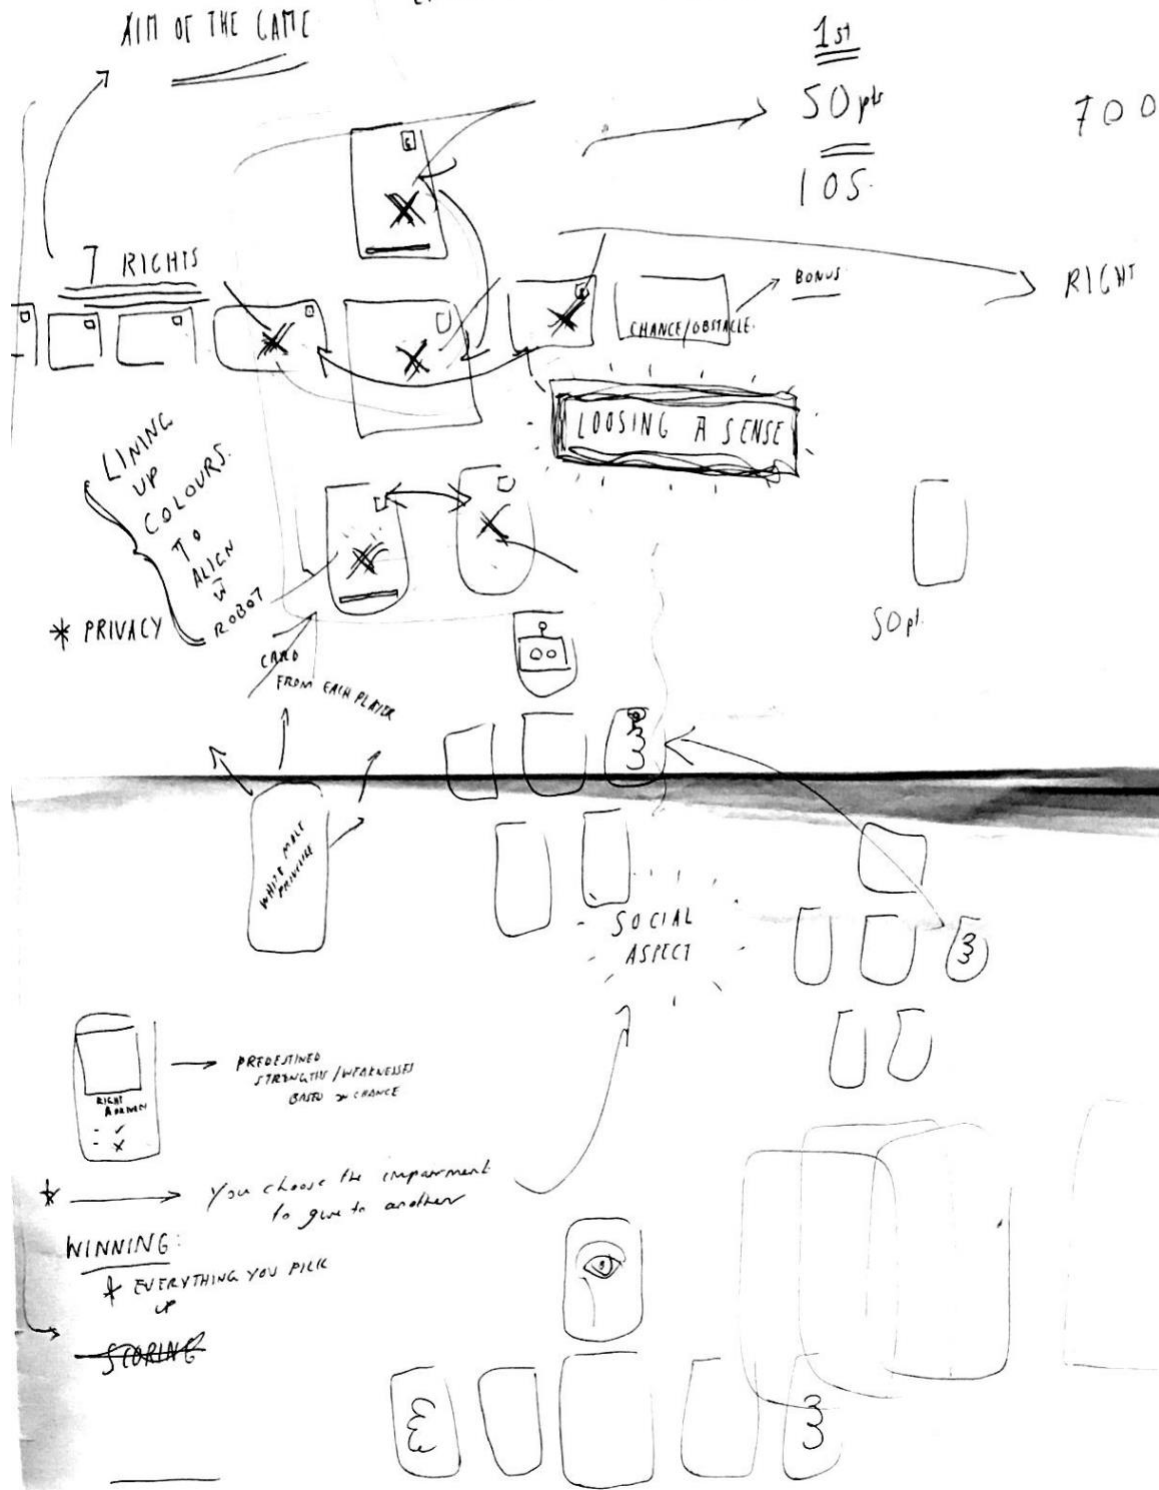 AIM OF THE GAME
1st
50 pts
105.
700
7 RIGHTS
RIGHT
BONUS
CHANCE/OBSTACLE.
LOOSING A SENSE
LINING
UP
COLOURS.
TO
ALIGN
W
ROBOT
* PRIVACY
50 pt.
CARD
FROM EACH PLAYER
WHITE MALE
PRIVILEGE
SOCIAL
ASPECT
PREDESTINED
STRENGTHS/WEAKNESSES
BASED ON CHANCE
RIGHT
- ✓
- X
* You choose the impairment
to give to another
WINNING:
* EVERYTHING YOU PICK
UP
SCORING